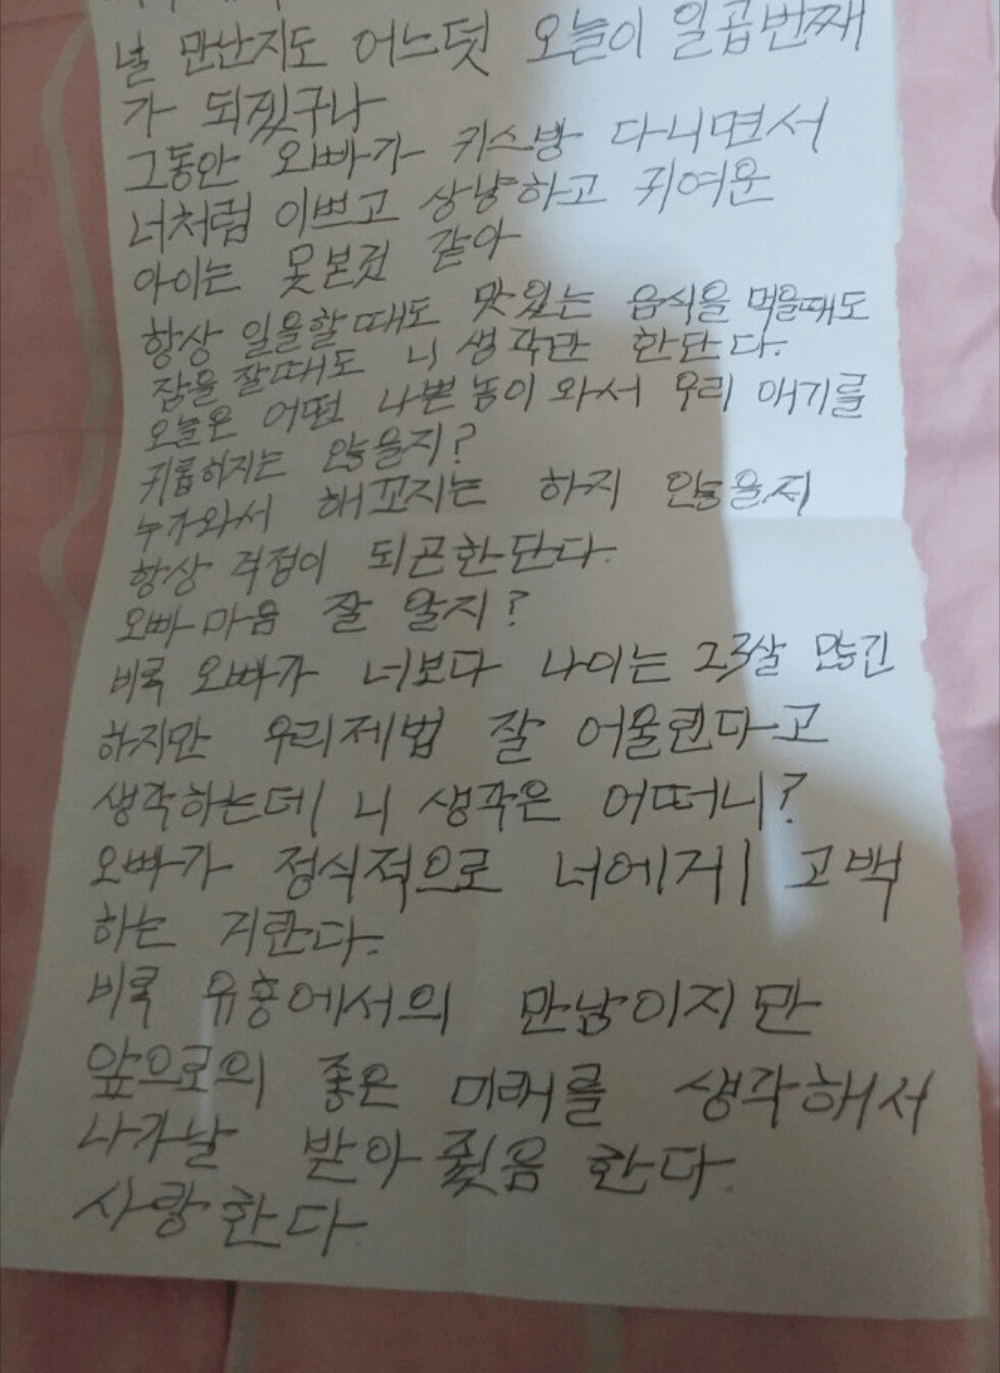 널 만난지도 어느덧 오늘이 일곱번째
가 되겠구나
그동안 오빠가 키스방 다니면서
너처럼 이쁘고 상냥하고 귀여운
아이는 못본것 같아
항상 일을할때도 맛있는 음식을 먹을때도
잠을 잘때도 니 생각만 한단다.
오늘은 어떤 나쁜 놈이 와서 우리 애기를
귀롭히지는 않을지?
누가와서 해꼬지는 하지 않을지
항상 걱정이 되곤한단다.
오빠 마음 잘 알지?
비록 오빠가 너보다 나이는 23살 많긴
하지만 우리제법 잘 어울린다고
생각하는데 니 생각은 어떠니?
오빠가 정식적으로 너에게 고백
하는 거란다.
비록 유흥에서의 만남이지만
앞으로의 좋은 미래를 생각해서
니가날 받아 줬음 한다.
사랑한다.